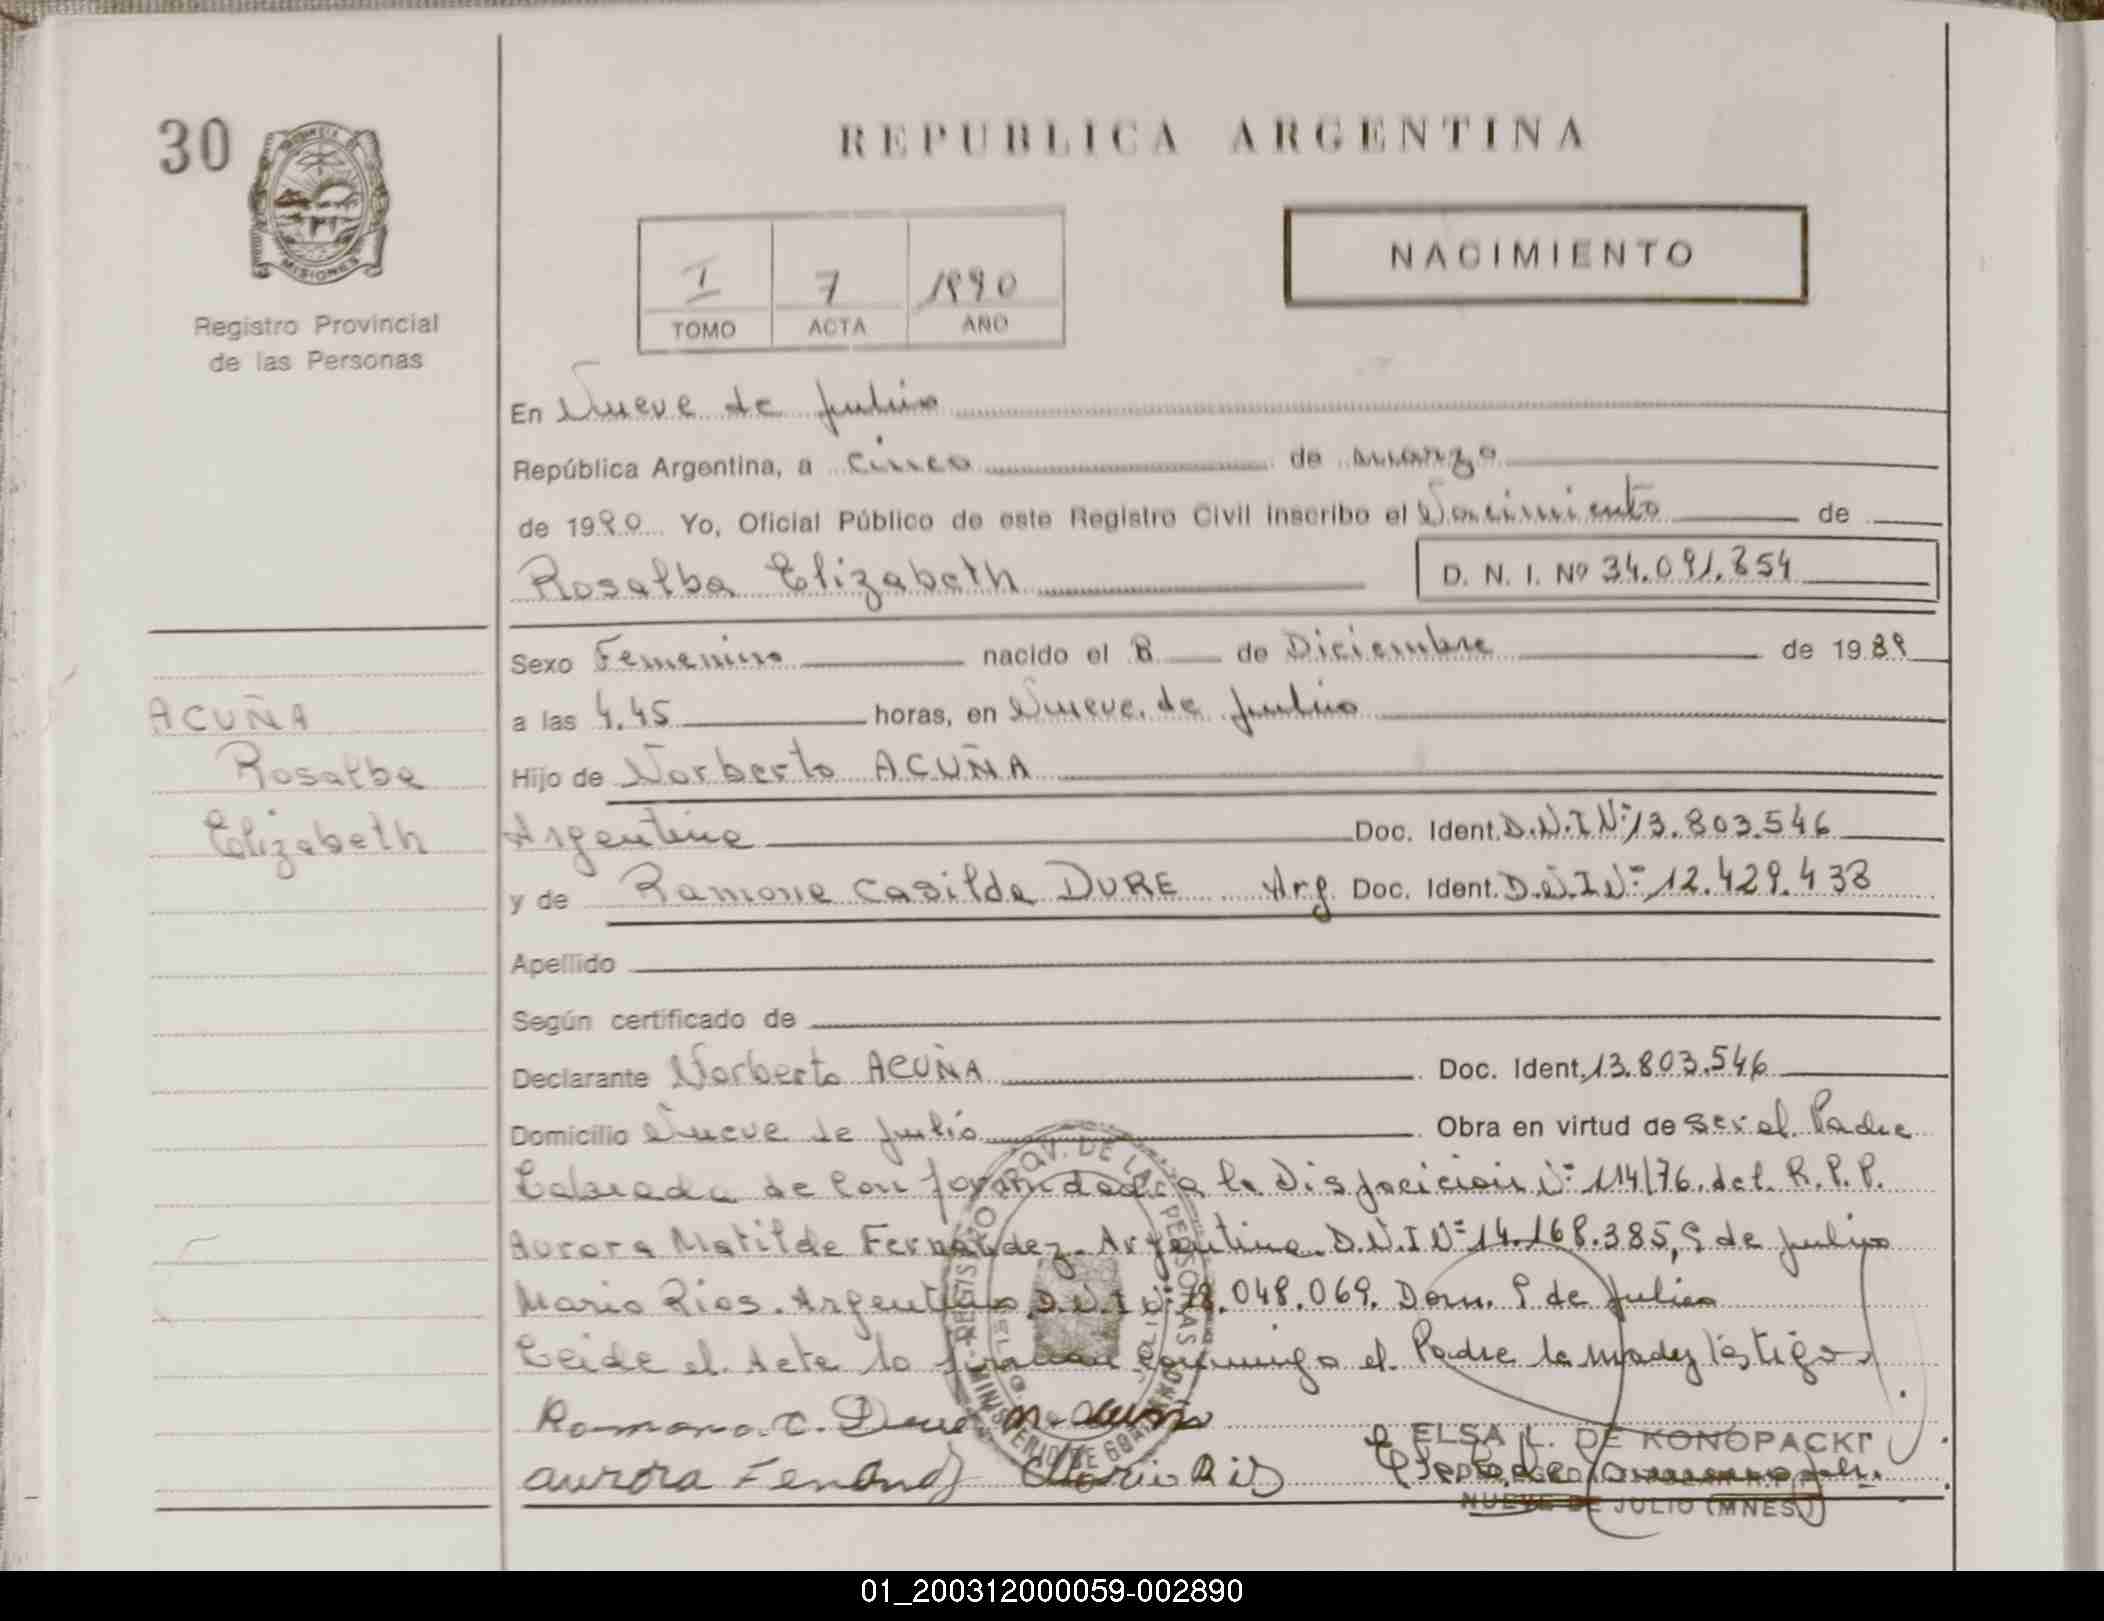 30
REPUBLICA ARGENTINA
MISIONES
Registro Provincial
de las Personas
I 7 1990
TOMO ACTA AÑO
NACIMIENTO
En Nueve de Julio
República Argentina, a cinco de marzo
de 1990 Yo, Oficial Público de este Registro Civil inscribo el Nacimiento de
Rosalba Elizabeth D. N. I. Nº 34.091.854
Sexo Femenino nacido el 8 de Diciembre de 1989
a las 4.45 horas, en Nueve de Julio
ACUÑA
Rosalba
Elizabeth
Hijo de Norberto ACUÑA
Argentina Doc. Ident. D.N.I Nº 13.803.546
y de Ramona Casilda DURE Arg. Doc. Ident. D.N.I Nº 12.429.438
Apellido
Según certificado de
Declarante Norberto ACUÑA Doc. Ident. 13.803.546
Domicilio Nueve de Julio Obra en virtud de ser el Padre
Labrada de Conformidad a la Disposicion Nº 114/76 del R.P.P.
Aurora Matilde Fernandez. Argentina. D.N.I Nº 14.168.385, 9 de Julio
Mario Rios. Argentino D.N.I Nº 18.048.069. Dom. 9 de Julio
Leida el Acta lo firman conmigo el Padre la madre y testigos
Ramona C. Dure N. Acuña
Aurora Mario
ELSA L. DE KONOPACKI
NUEVE DE JULIO (MNES.)
01_200312000059-002890